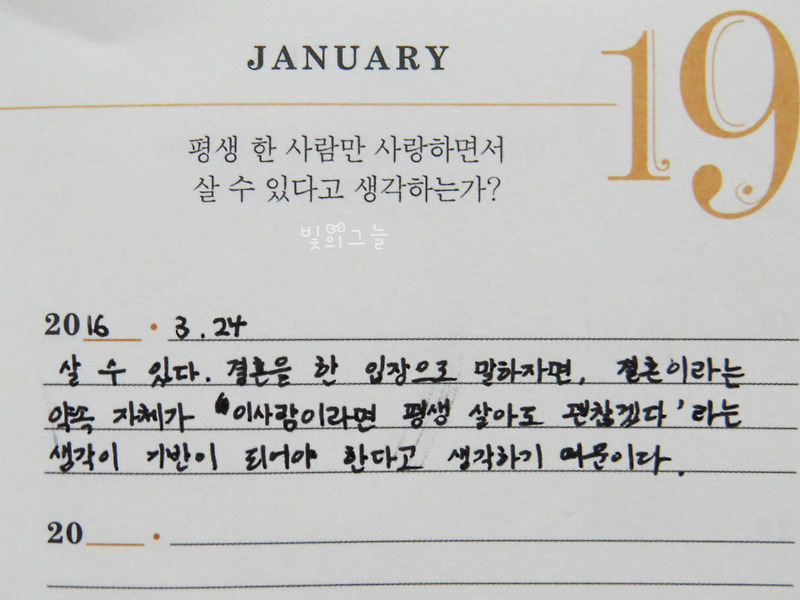 JANUARY
19
평생 한 사람만 사랑하면서
살 수 있다고 생각하는가?
빛의그늘
2016 · 3.24
살 수 있다. 결혼을 한 입장으로 말하자면, 결혼이라는
약속 자체가 '이사람이라면 평생 살아도 괜찮겠다'라는
생각이 기반이 되어야 한다고 생각하기 때문이다.
20 ·